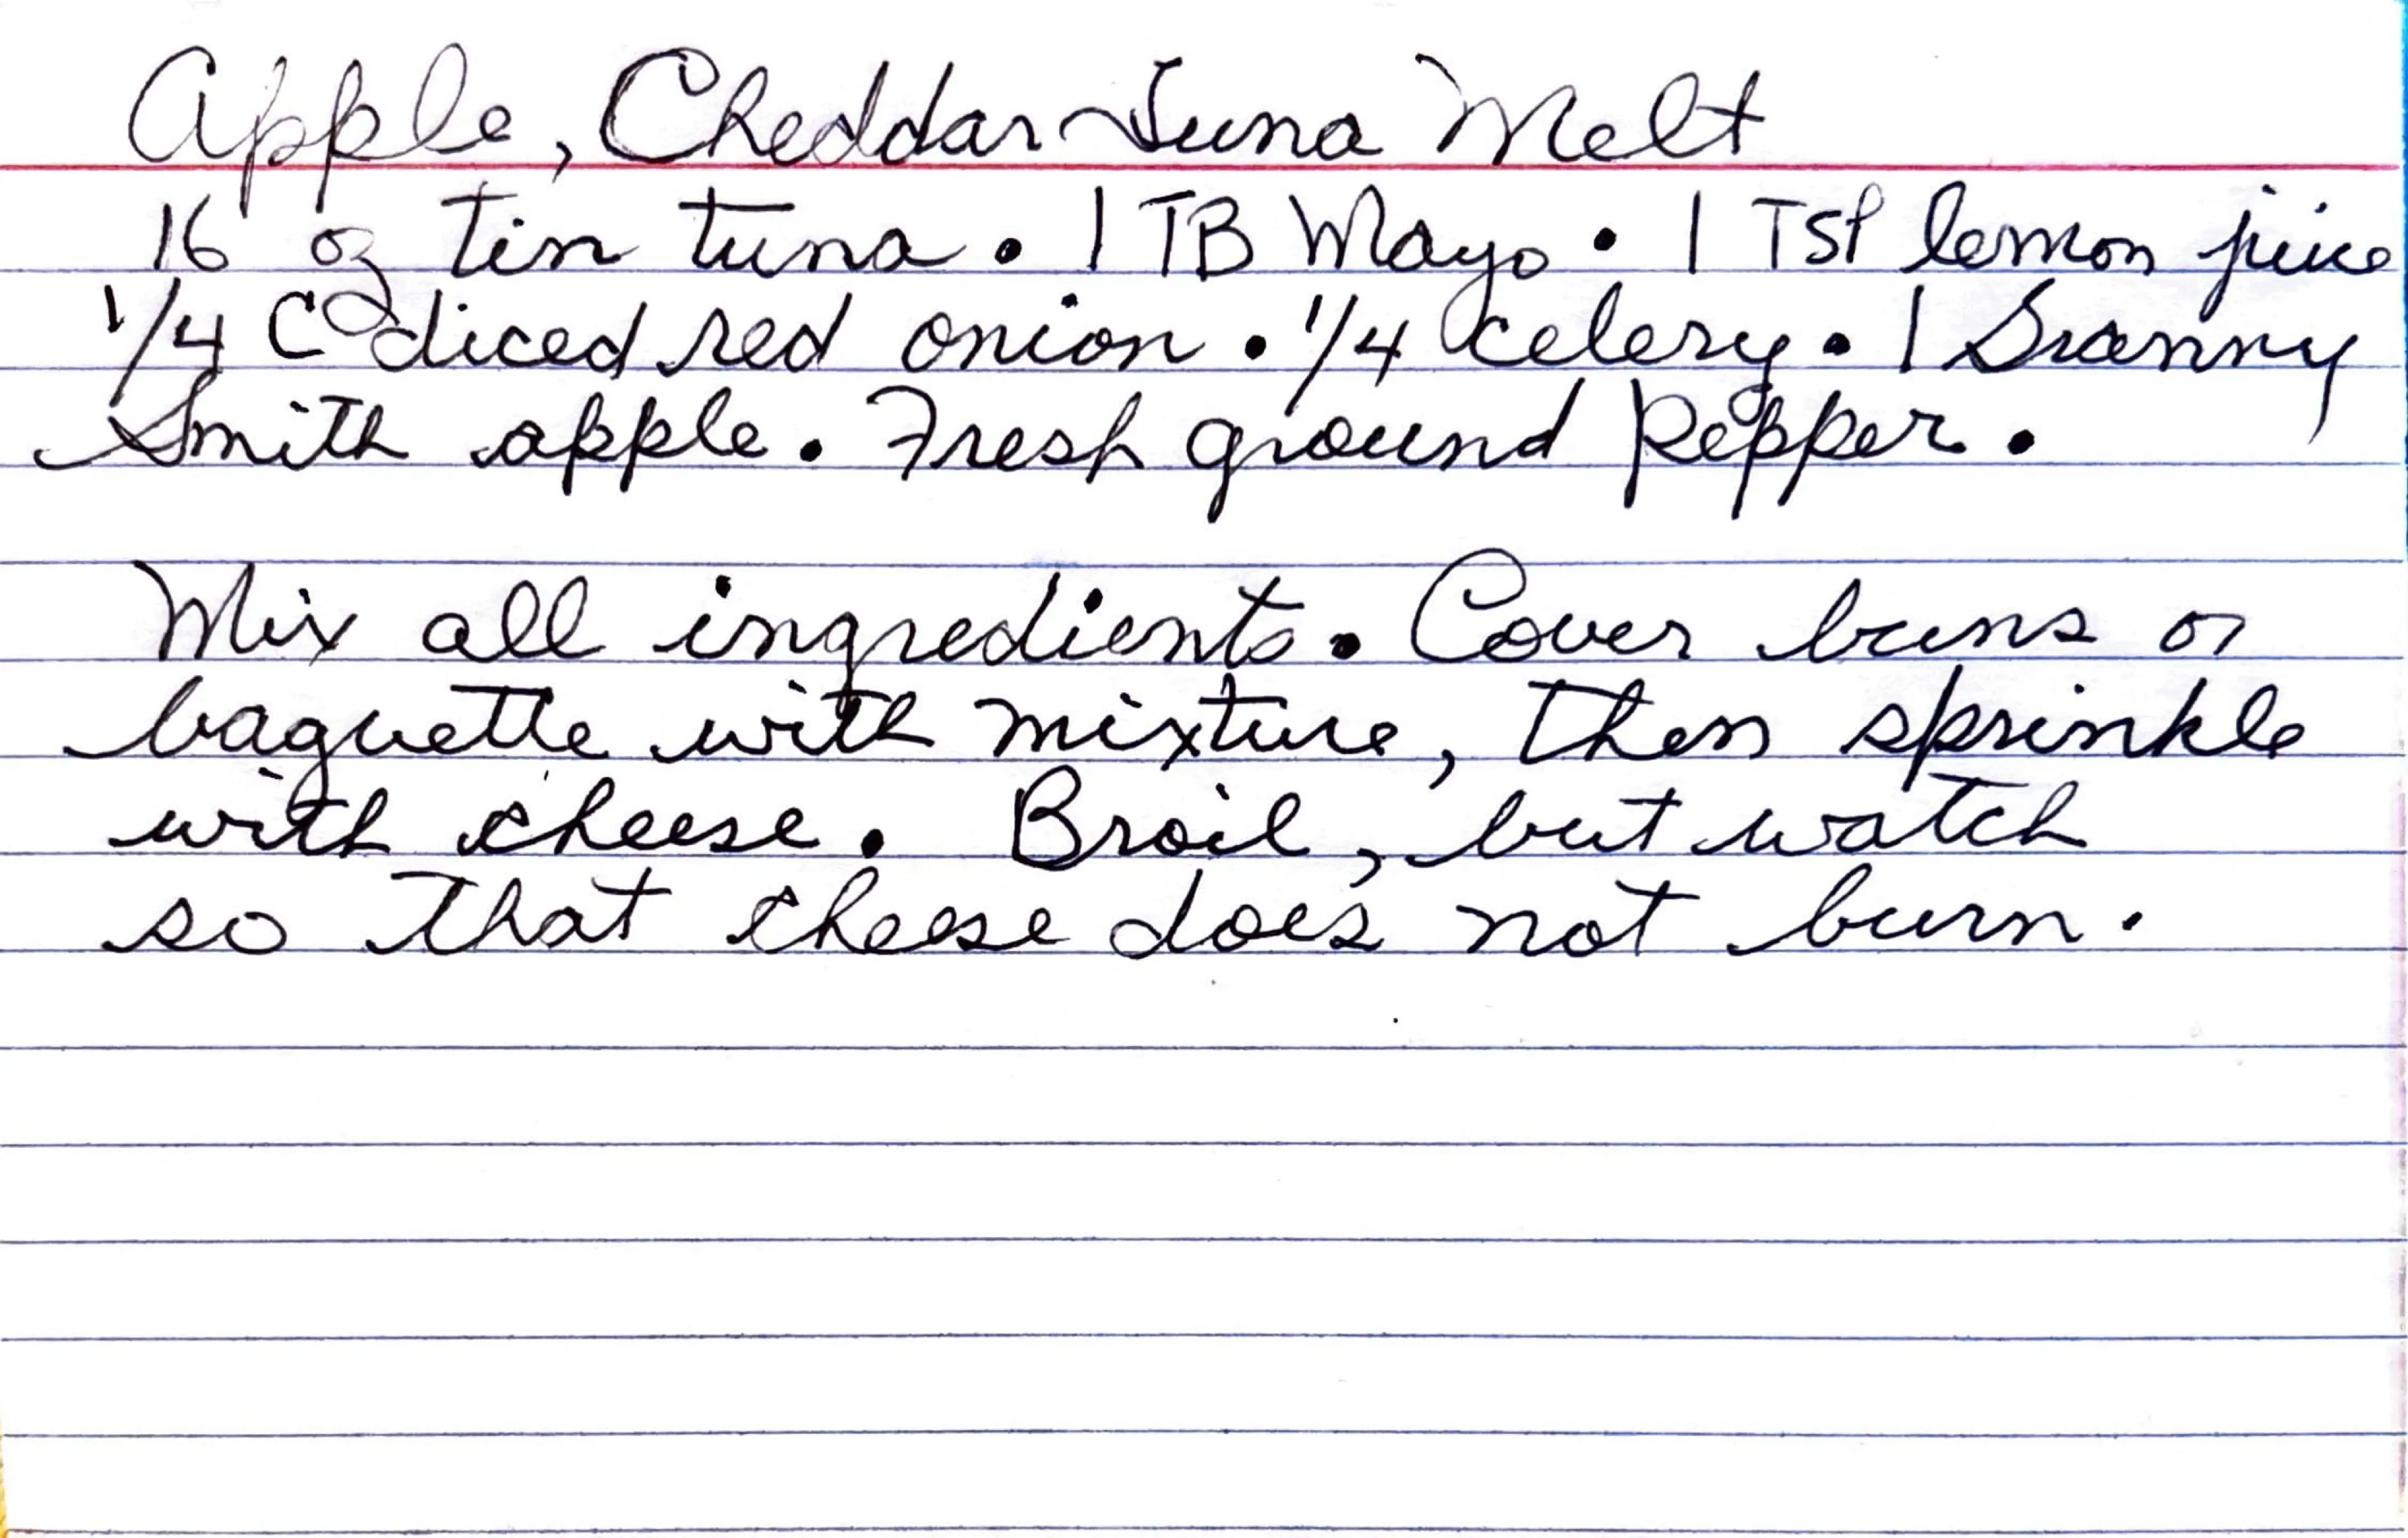 Apple, Cheddar Tuna Melt
16 oz tin tuna. 1 TB Mayo. 1 TSP lemon juice
1/4 C diced red onion. 1/4 celery. 1 Granny
Smith apple. Fresh ground Pepper.
Mix all ingredients. Cover buns or
baguette with mixture, then sprinkle
with cheese. Broil, but watch
so that cheese does not burn.